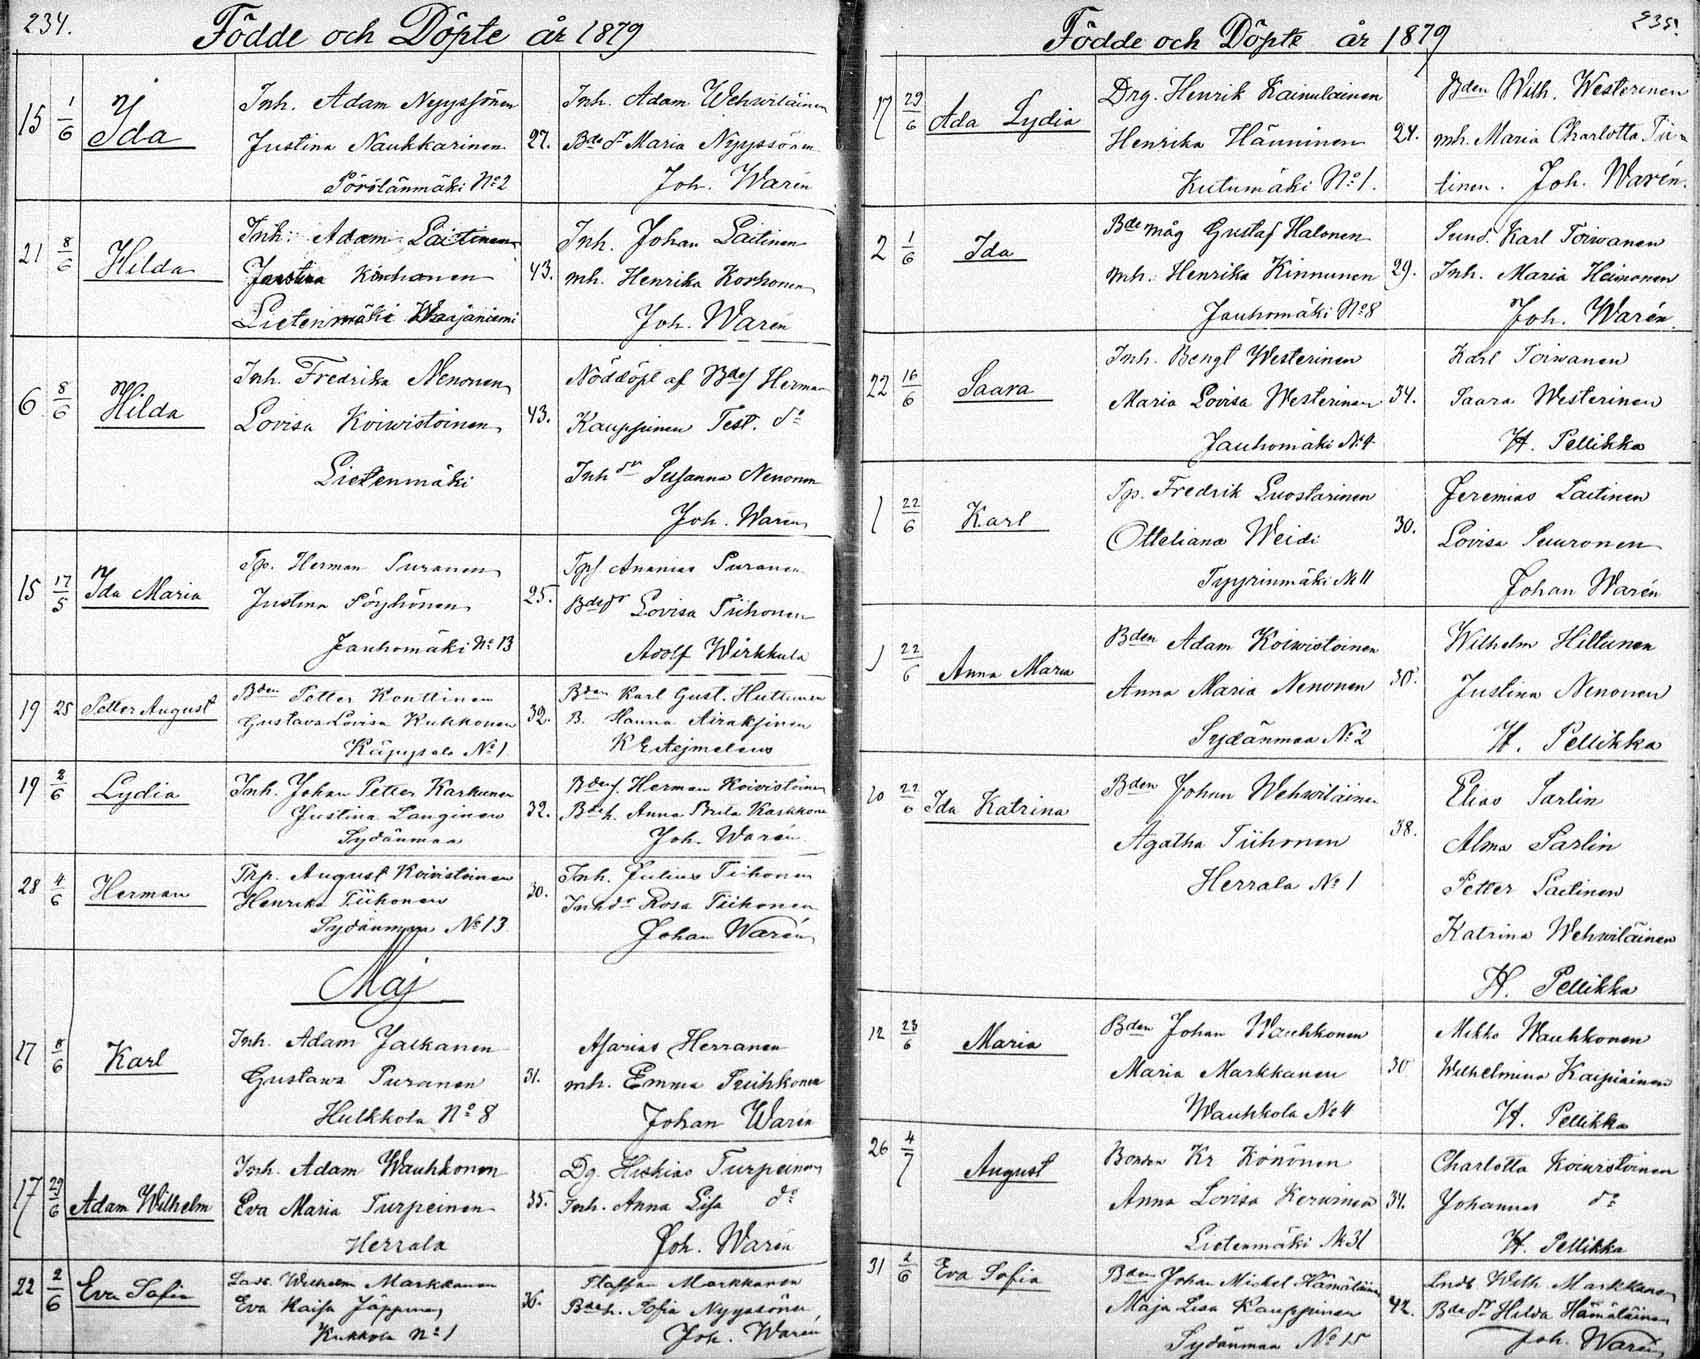 234.
Födde och Döpte år 1879
15 1/6 Ida
Inh. Adam Nyyssönen
Justina Naukkarinen
Pörölänmäki No 2
27.
Inh. Adam Wehwiläinen
Bde dr Maria Nyyssönen
Joh. Warén
21 8/6 Hilda
Inh. Adam Laitinen
Korhonen
Lietenmäki
43.
Inh. Johan Laitinen
mh. Henrika Korhonen
Joh. Warén
6 8/6 Hilda
Inh. Fredrika Nenonen
Lovisa Koiwistoinen
Lietenmäki
43.
Nöddöpt af Bdes Herman
Kauppinen Test. do
Inh dr Susanna Nenonen
Joh. Warén
15 17/5 Ida Maria
Tp. Herman Puranen
Justina Pöyhönen
Jauhomäki No 13
25.
Tps Ananias Puranen
Bde dr Lovisa Tiihonen
Adolf Wirkkula
19 25 Petter August
Bden Petter Konttinen
Gustava Lovisa Kukkonen
Käpysalo No 1
32.
Bden Karl Gust. Huttunen
B. Hanna Airaksinen
19 2/6 Lydia
Inh. Johan Petter Karkunen
Justina Langinen
Sydänmaa
32.
Bdes. Herman Koivistoinen
Bdeh. Anna Brita
Joh. Warén
28 4/6 Herman
Trp. August Koivistoinen
Henrika Tiihonen
Sydänmaa No 13
30.
Inh. Julius Tiihonen
Inh dr Rosa Tiihonen
Johan Warén
Maj
17 8/6 Karl
Inh. Adam Jalkanen
Gustava Puranen
Hulkkola No 8
31.
Asarias Herranen
mh. Emma
Johan Warén
17 29/6 Adam Wilhelm
Inh. Adam Wauhkonen
Eva Maria Turpeinen
Herrala
35.
Dg. Hiskias Turpeinen
Inh. Anna Lisa do
Joh. Warén
22 2/6 Eva Sofia
Wilhelm Markkanen
Eva Kaisa Jäppinen
Kukkola No 1
36.
Staffan Markkanen
Bdeh. Sofia Nyyssönen
Joh. Warén
235.
Födde och Döpte år 1879
17 29/6 Ada Lydia
Drg. Henrik Kainulainen
Henrika Hänninen
Kutumäki No 1.
24.
Bden Wilh. Westerinen
mh. Maria Charlotta
tinen. Joh. Warén.
2 1/6 Ida
Bdemåg Gustaf Halonen
mh. Henrika Kinnunen
Jauhomäki No 8
29.
Karl Toiwanen
Inh. Maria Heinonen
Joh. Warén
22 16/6 Saara
Inh. Bengt Westerinen
Maria Lovisa Westerinen
Jauhomäki No 4
34.
Karl Toiwanen
Saara Westerinen
H. Pellikka
1 22/6 Karl
Tp. Fredrik Luostarinen
Otteliana Weidi
Tyyrinmäki No 11
30.
Jeremias Laitinen
Lovisa Suuronen
Johan Warén
22/6 Anna Maria
Bden Adam Koiwistoinen
Anna Maria Nenonen
Sydänmaa No 2
Wilhelm Hiltunen
Justina Nenonen
H. Pellikka
10 22/6 Ida Katrina
Bden Johan Wehwiläinen
Agatha Tiihonen
Herrala No 1
38.
Elias Sarlin
Alma Sarlin
Petter Laitinen
Katrina Wehwiläinen
H. Pellikka
12 23/6 Maria
Bden Johan Wauhkonen
Maria Markkanen
Wauhkola No 4
30
Mikko Wauhkonen
Wilhelmina Kaipiainen
H. Pellikka
26 4/7 August
Bonden Kr Könönen
Anna Lovisa Kerwinen
Lietenmäki No 31
34.
Charlotta Koiwistoinen
Johannes do
H. Pellikka
31 2/6 Eva Sofia
Bden Johan Mickel Hämäläinen
Maja Lisa Kauppinen
Sydänmaa No 15
42.
Wilh. Markkanen
Bde dr Hilda Hämäläinen
Joh. Warén